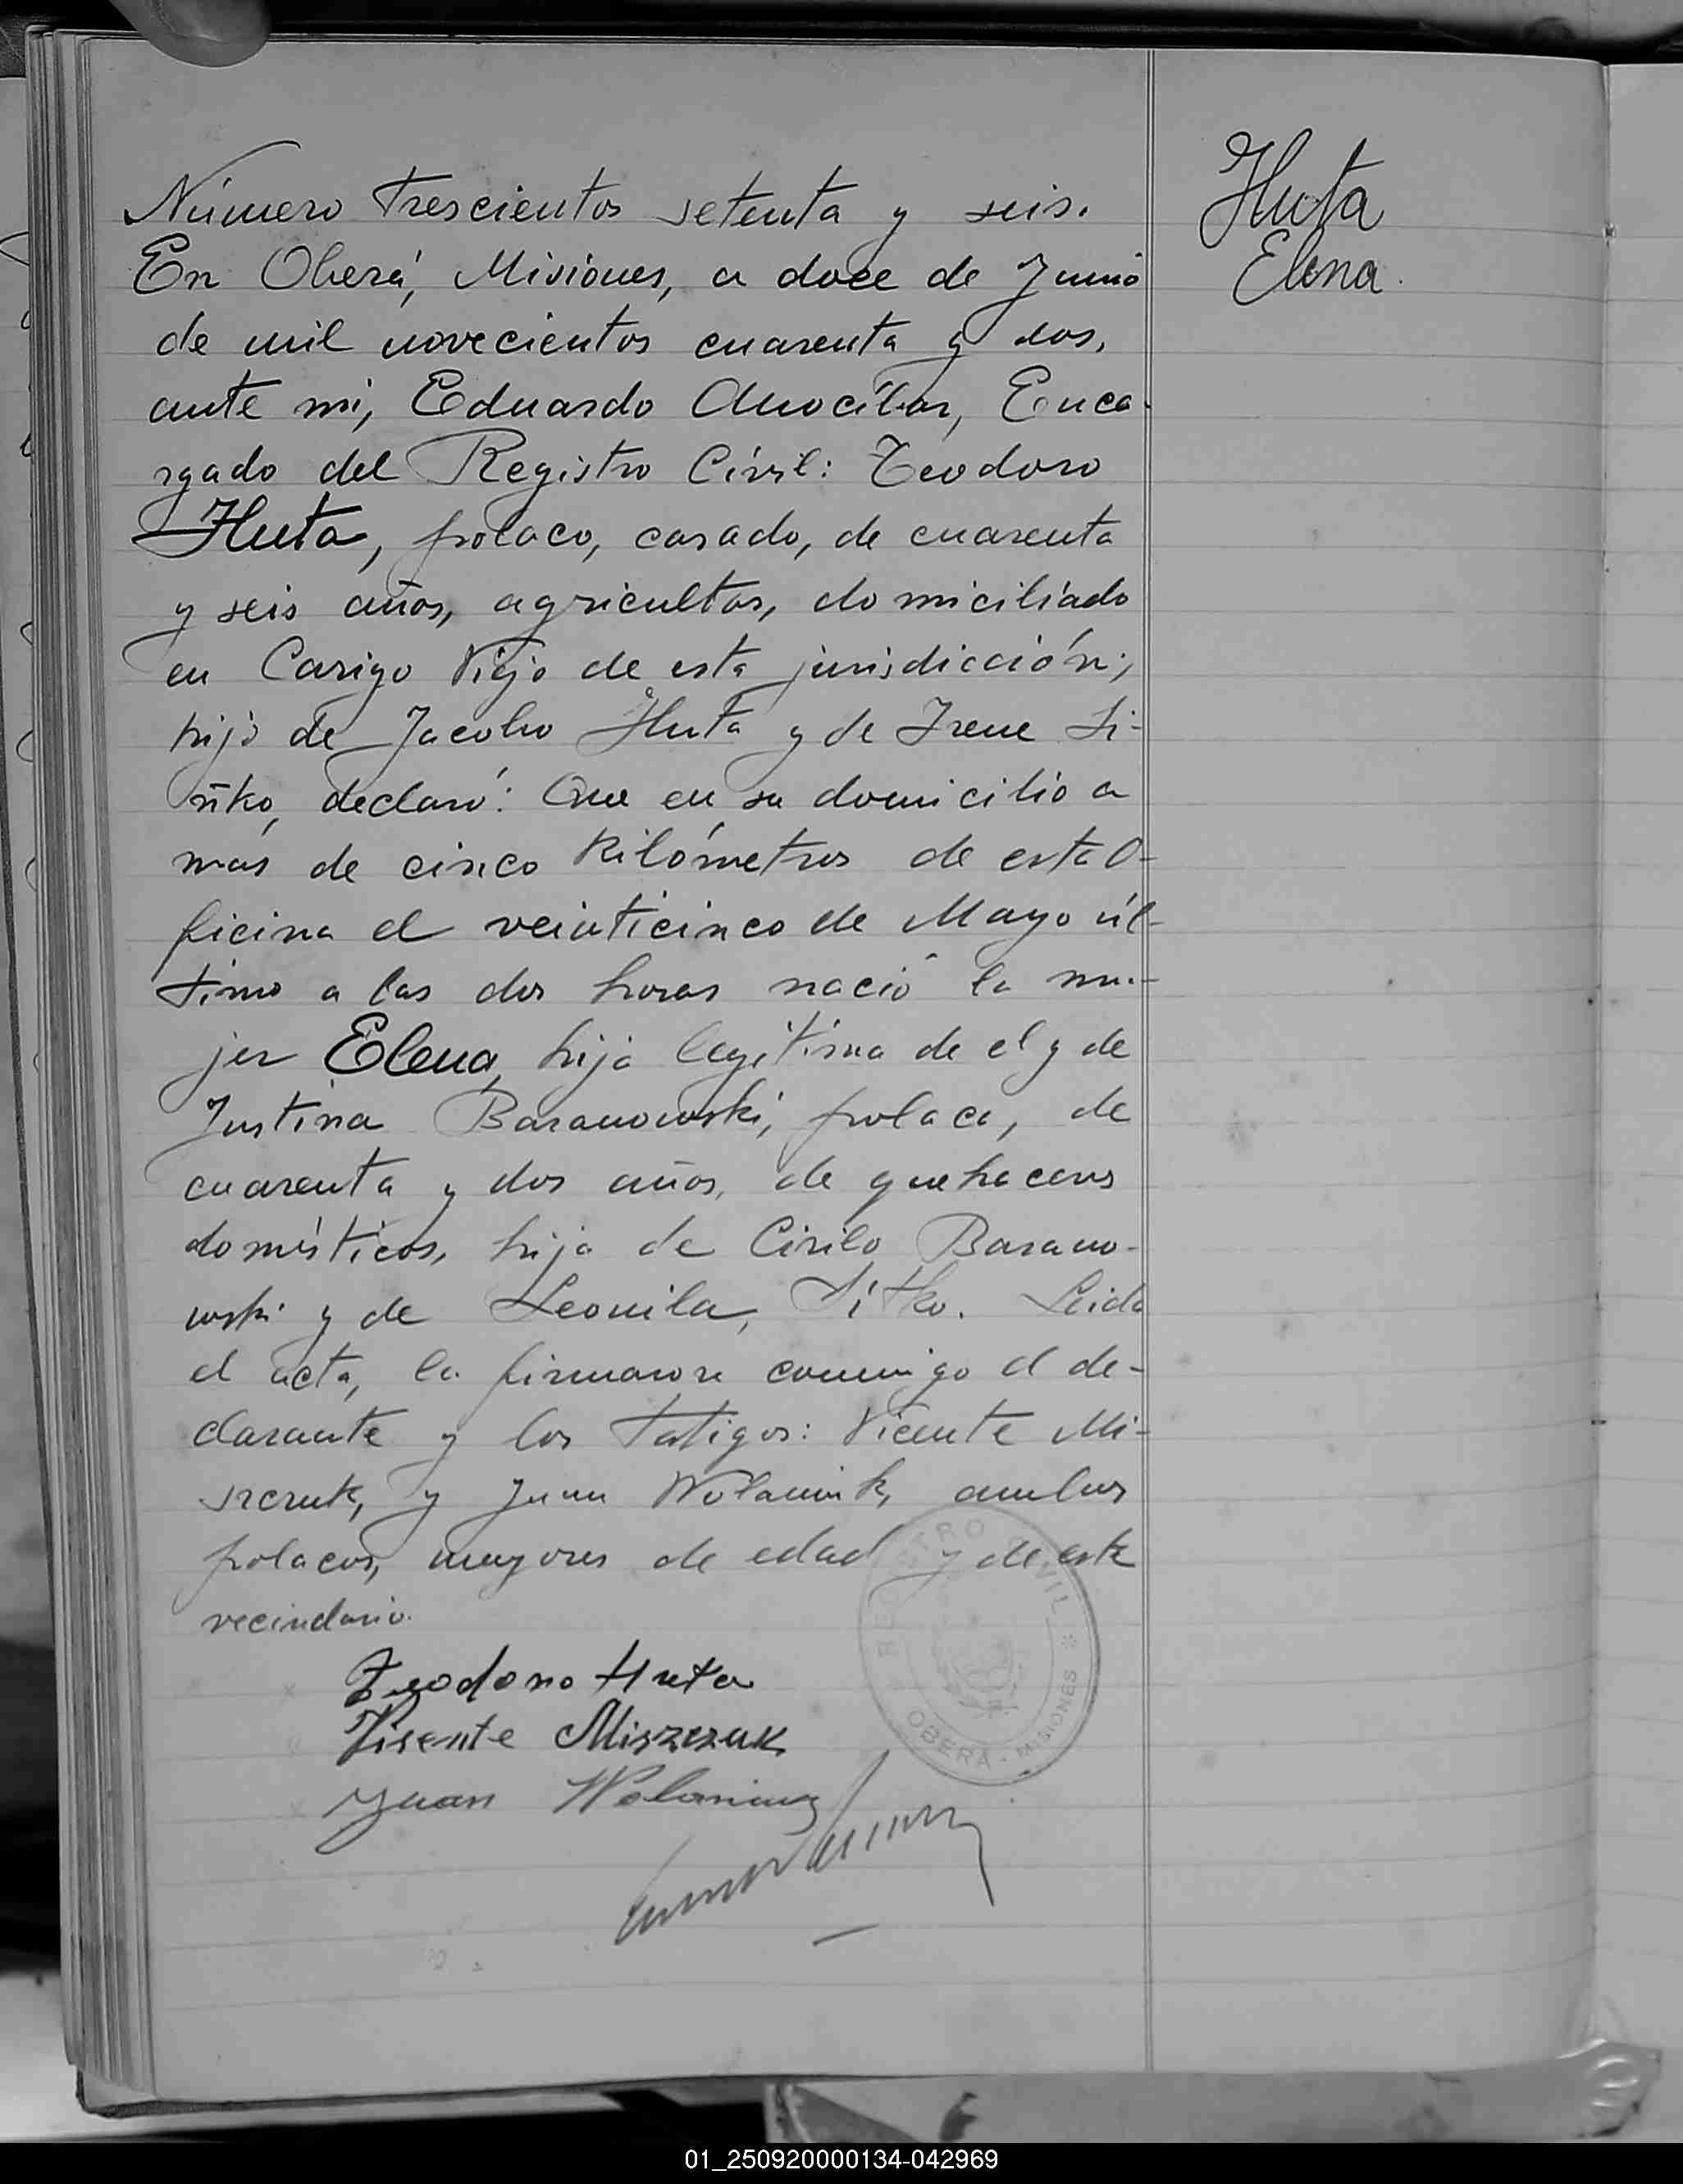 Número trescientos setenta y seis.
En Oberá, Misiones, a doce de Junio
de mil novecientos cuarenta y dos,
ante mi, Eduardo Anocíbar, Enca-
rgado del Registro Civil: Teodoro
Huta, polaco, casado, de cuarenta
y seis años, agricultor, domiciliado
en Carigo Viejo de esta jurisdicción;
hijo de Jacobo Huta y de Irene
declaró: Que en su domicilio a
mas de cinco Kilómetros de esta O-
ficina el veinticinco de Mayo úl-
timo a las dos horas nació la mu-
jer Elena, hija legítima de el y de
Justina Baranowski, polaca, de
cuarenta y dos años, de quehaceres
domésticos, hija de Cirilo Barano-
wski y de Leonila, Sitko. Leida
el acta, la firmaron conmigo el de-
clarante y los testigos: Vicente Mi-
szczuk, y Juan Wolaniuk, ambos
polacos, mayores de edad y de este
vecindario.
Teodoro Huta
Visente Miszczuk
Juan
Huta
Elena.
REGISTRO CIVIL
OBERÁ - MISIONES
01_250920000134-042969